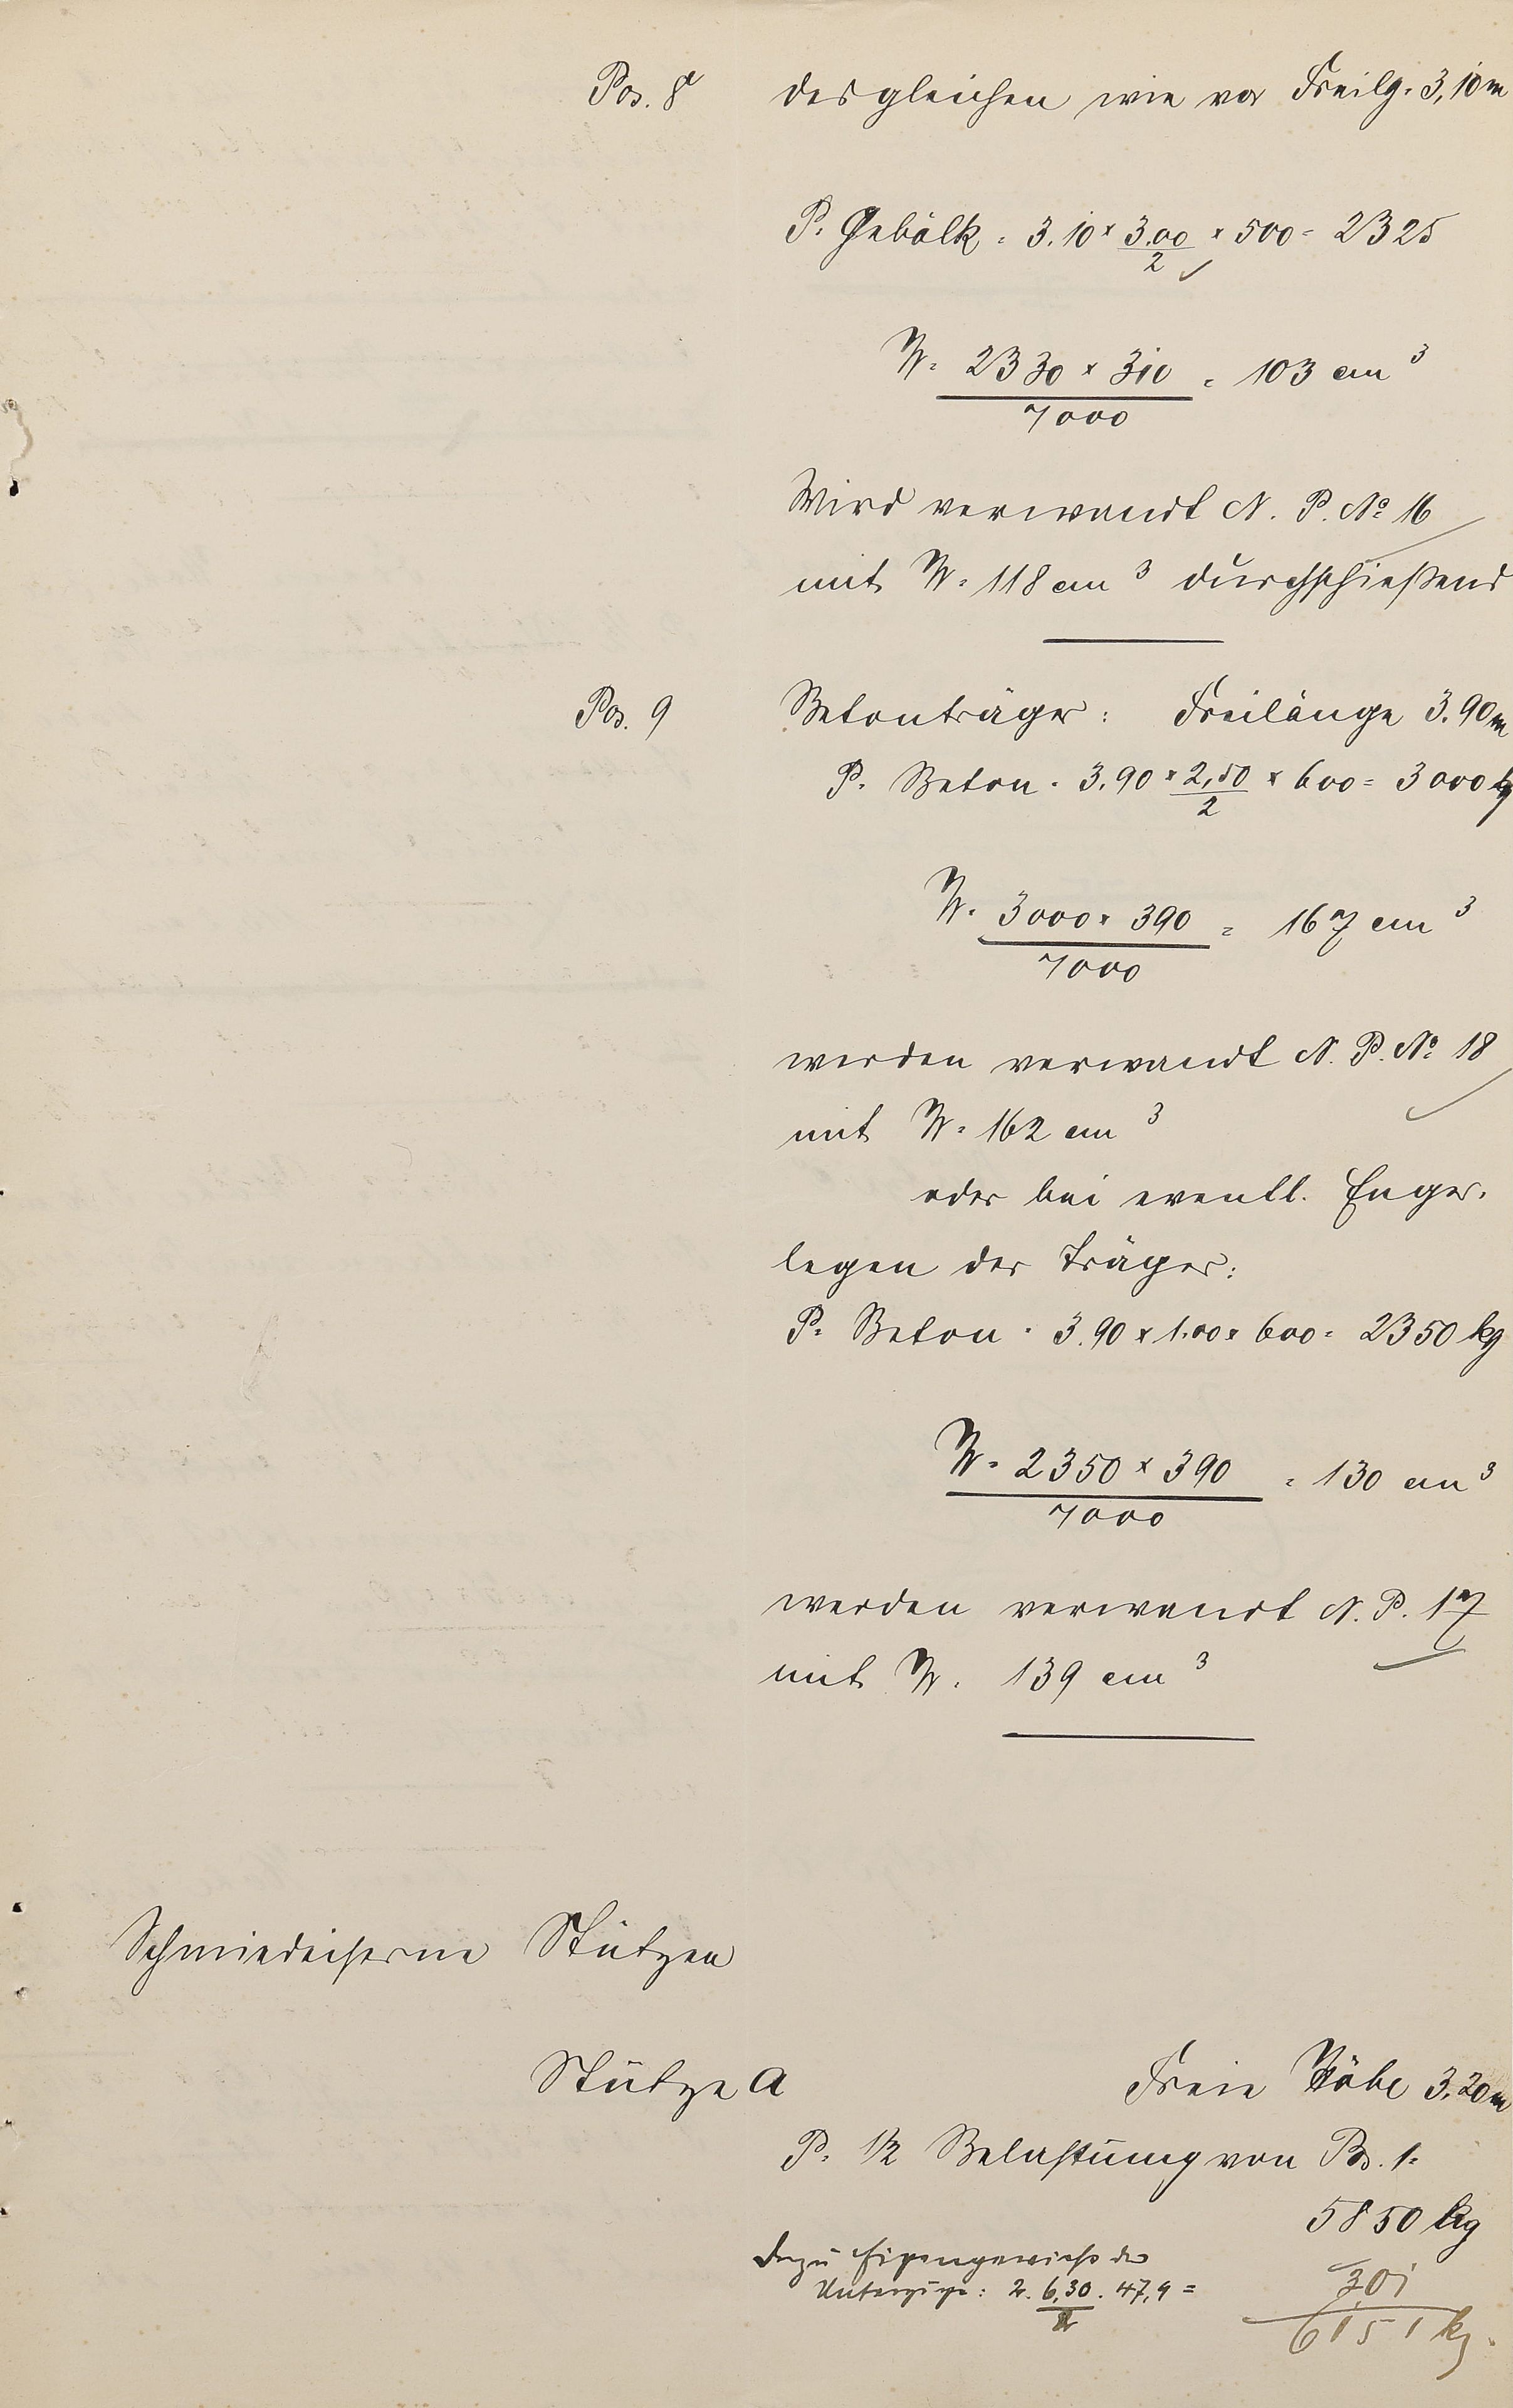 Pos. 8 desgleichen wie vor Freilg. 3,10 m
P. Gebälk = 3.10 × 3.00/2 × 500 = 2325
W = 2330 × 310 / 7000 = 103 cm³
Wird verwandt N. P. No 16
mit W = 118 cm³ durchschießend
Pos. 9 Betonträger: Freilänge 3.90 m
P. Beton = 3.90 × 2,50/2 × 600 = 3000 kg
W = 3000 × 390 / 7000 = 167 cm³
werden verwandt N. P. No 18
mit W = 162 cm³
oder bei eventl. Enger-
legen der Träger:
P. Beton = 3.90 × 1.00 × 600 = 2350 kg
W = 2350 × 390 / 7000 = 130 cm³
werden verwandt N. P. 17
mit W = 139 cm³
Schmiedeiserne Stützen
Stütze A Freie Höhe 3.20 m
P. 1/2 Belastung von Pos. 1 =
5850 kg
dazu Eigengewicht der
Unterzüge: 2 . 6,30/2 . 47,9 = 301
6151 kg.